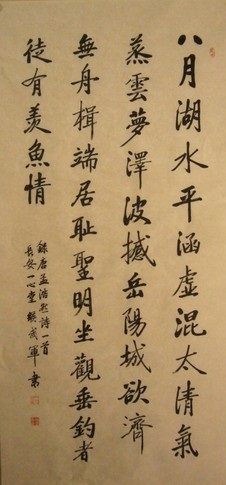 八月湖水平涵虛混太清氣
蒸雲夢澤波撼岳陽城欲濟
無舟楫端居耻聖明坐觀垂釣者
徒有羨魚情
錄唐孟浩然詩一首
長安一心堂武軍書